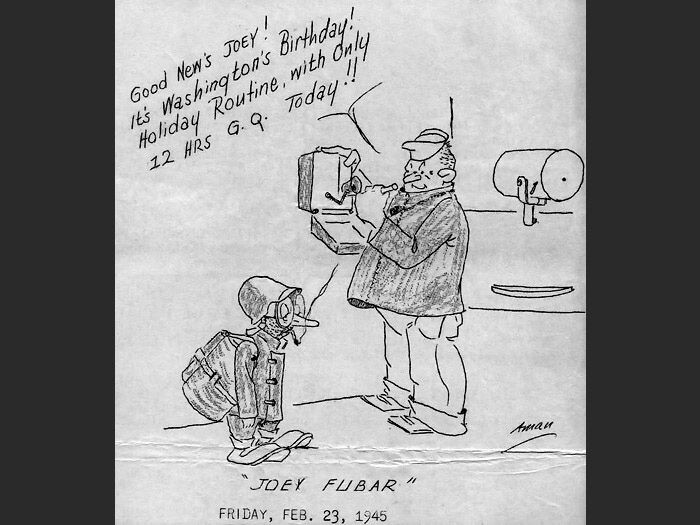 Good New's JOEY!
It's Washington's Birthday!
Holiday Routine, with Only
12 HRS G.Q. Today!!
Aman
"JOEY FUBAR"
FRIDAY, FEB. 23, 1945